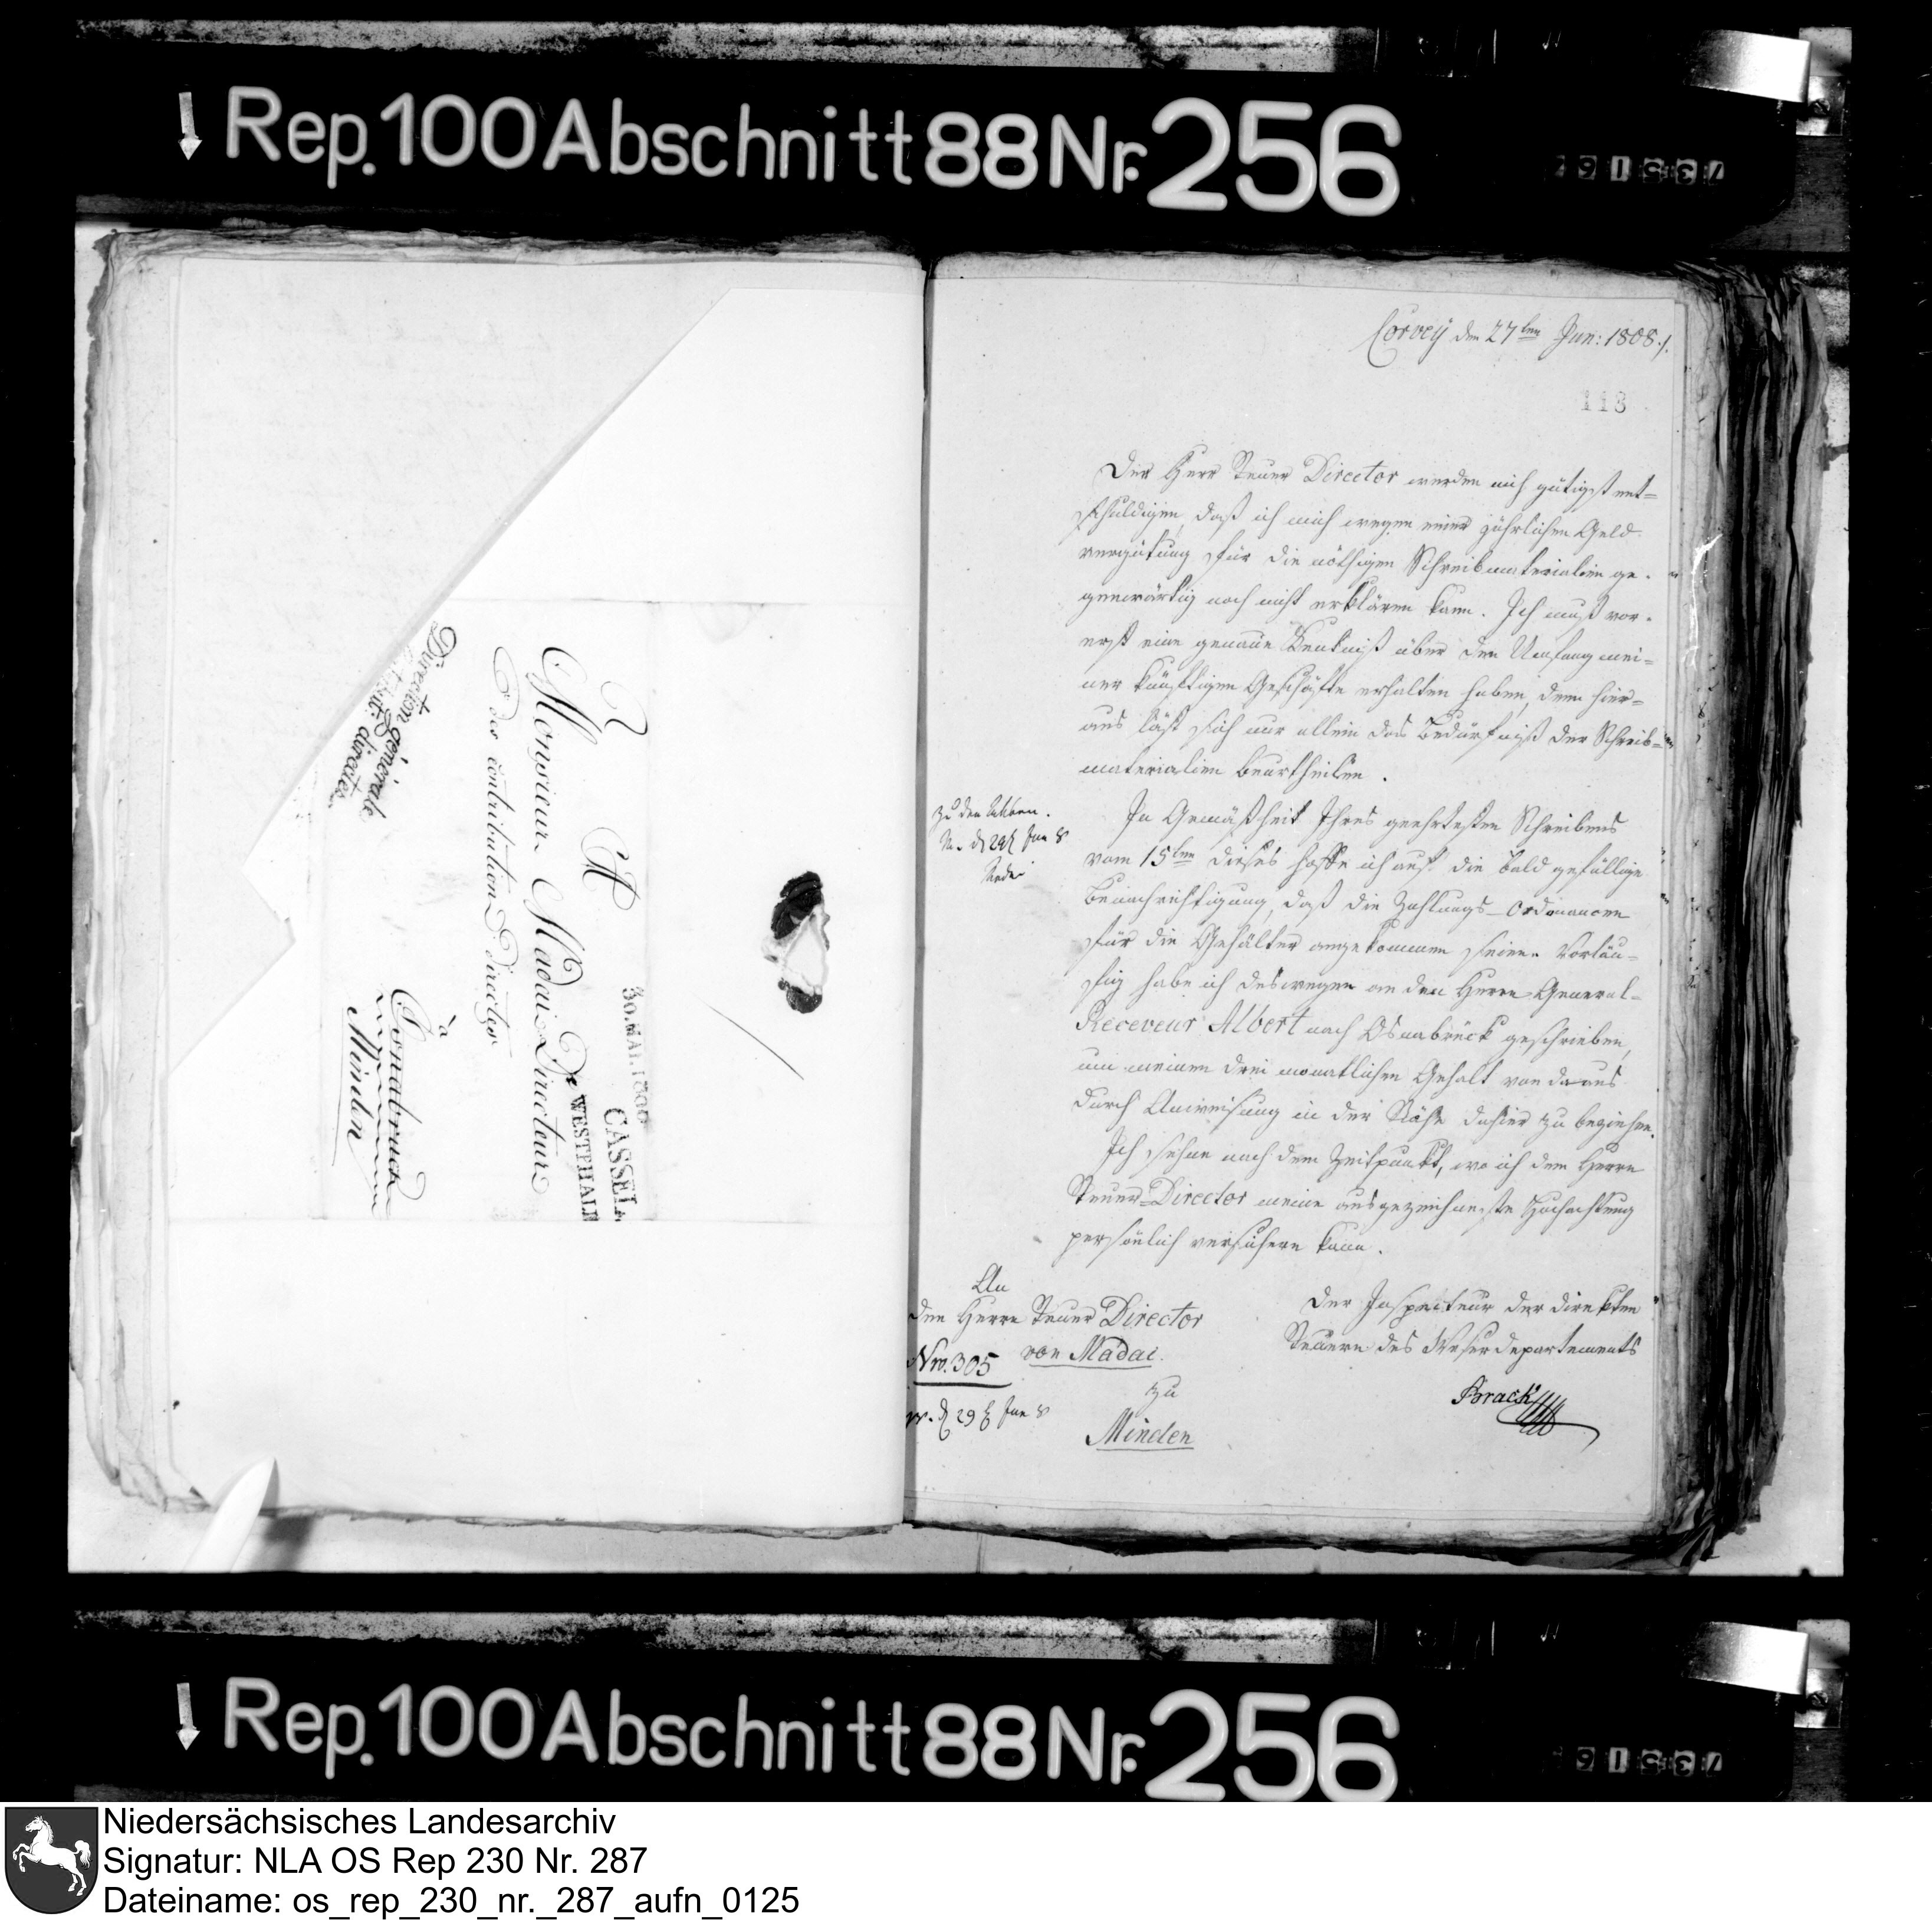 Rep. 100 Abschnitt 88 Nr. 256
A
Monsieur Madai Directeur
des contributions directes
à
Osnabruck
Minden
Direction générale
directes
30. MAI. 1808
CASSEL
WESTPHALIE
Corvey den 27ten Jun: 1808./.
113
Der Herr Steuer Director werden mich gütigst ent-
schuldigen, daß ich mich wegen einer jährlichen Geld
vergütung für die nöthigen Schreibmaterialien ge-
genwärtig noch nicht erklären kann. Ich muß vor-
erst eine genaue Kentniß über den Umfang mei-
ner künftigen Geschäfte erhalten haben, denn hier-
aus läßt sich nur allein das Bedürfniß der Schreib-
materialien beurtheilen.
zu den Akten.
M. d 29t Jun 8
Madai
In Gemäßheit Ihres geehrtesten Schreibens
vom 15ten dieses hoffe ich auf die bald gefällige
Benachrichtigung, daß die Zahlungs-Ordonancen
für die Gehälter angekommen seien. Vorläu-
fig habe ich deswegen an den Herrn General-
Receveur Albert nach Osnabrück geschrieben,
um meinen drei monatlichen Gehalt von daaus
durch Anweisung in der Nähe dahier zu beziehen.
Ich sehne nach dem Zeitpunkt, wo ich dem Herrn
Steuer-Director meine ausgezeichneste Hochachtung
persönlich versichern kann.
An
den Herrn Steuer Director
von Madai.
Nro. 305
zu
pr. d 29t Jun 8
Minden
Der Inspecteur der direkten
Steuern des Weserdepartements
Brack
Rep. 100 Abschnitt 88 Nr. 256
Niedersächsisches Landesarchiv
Signatur: NLA OS Rep 230 Nr. 287
Dateiname: os_rep_230_nr._287_aufn_0125